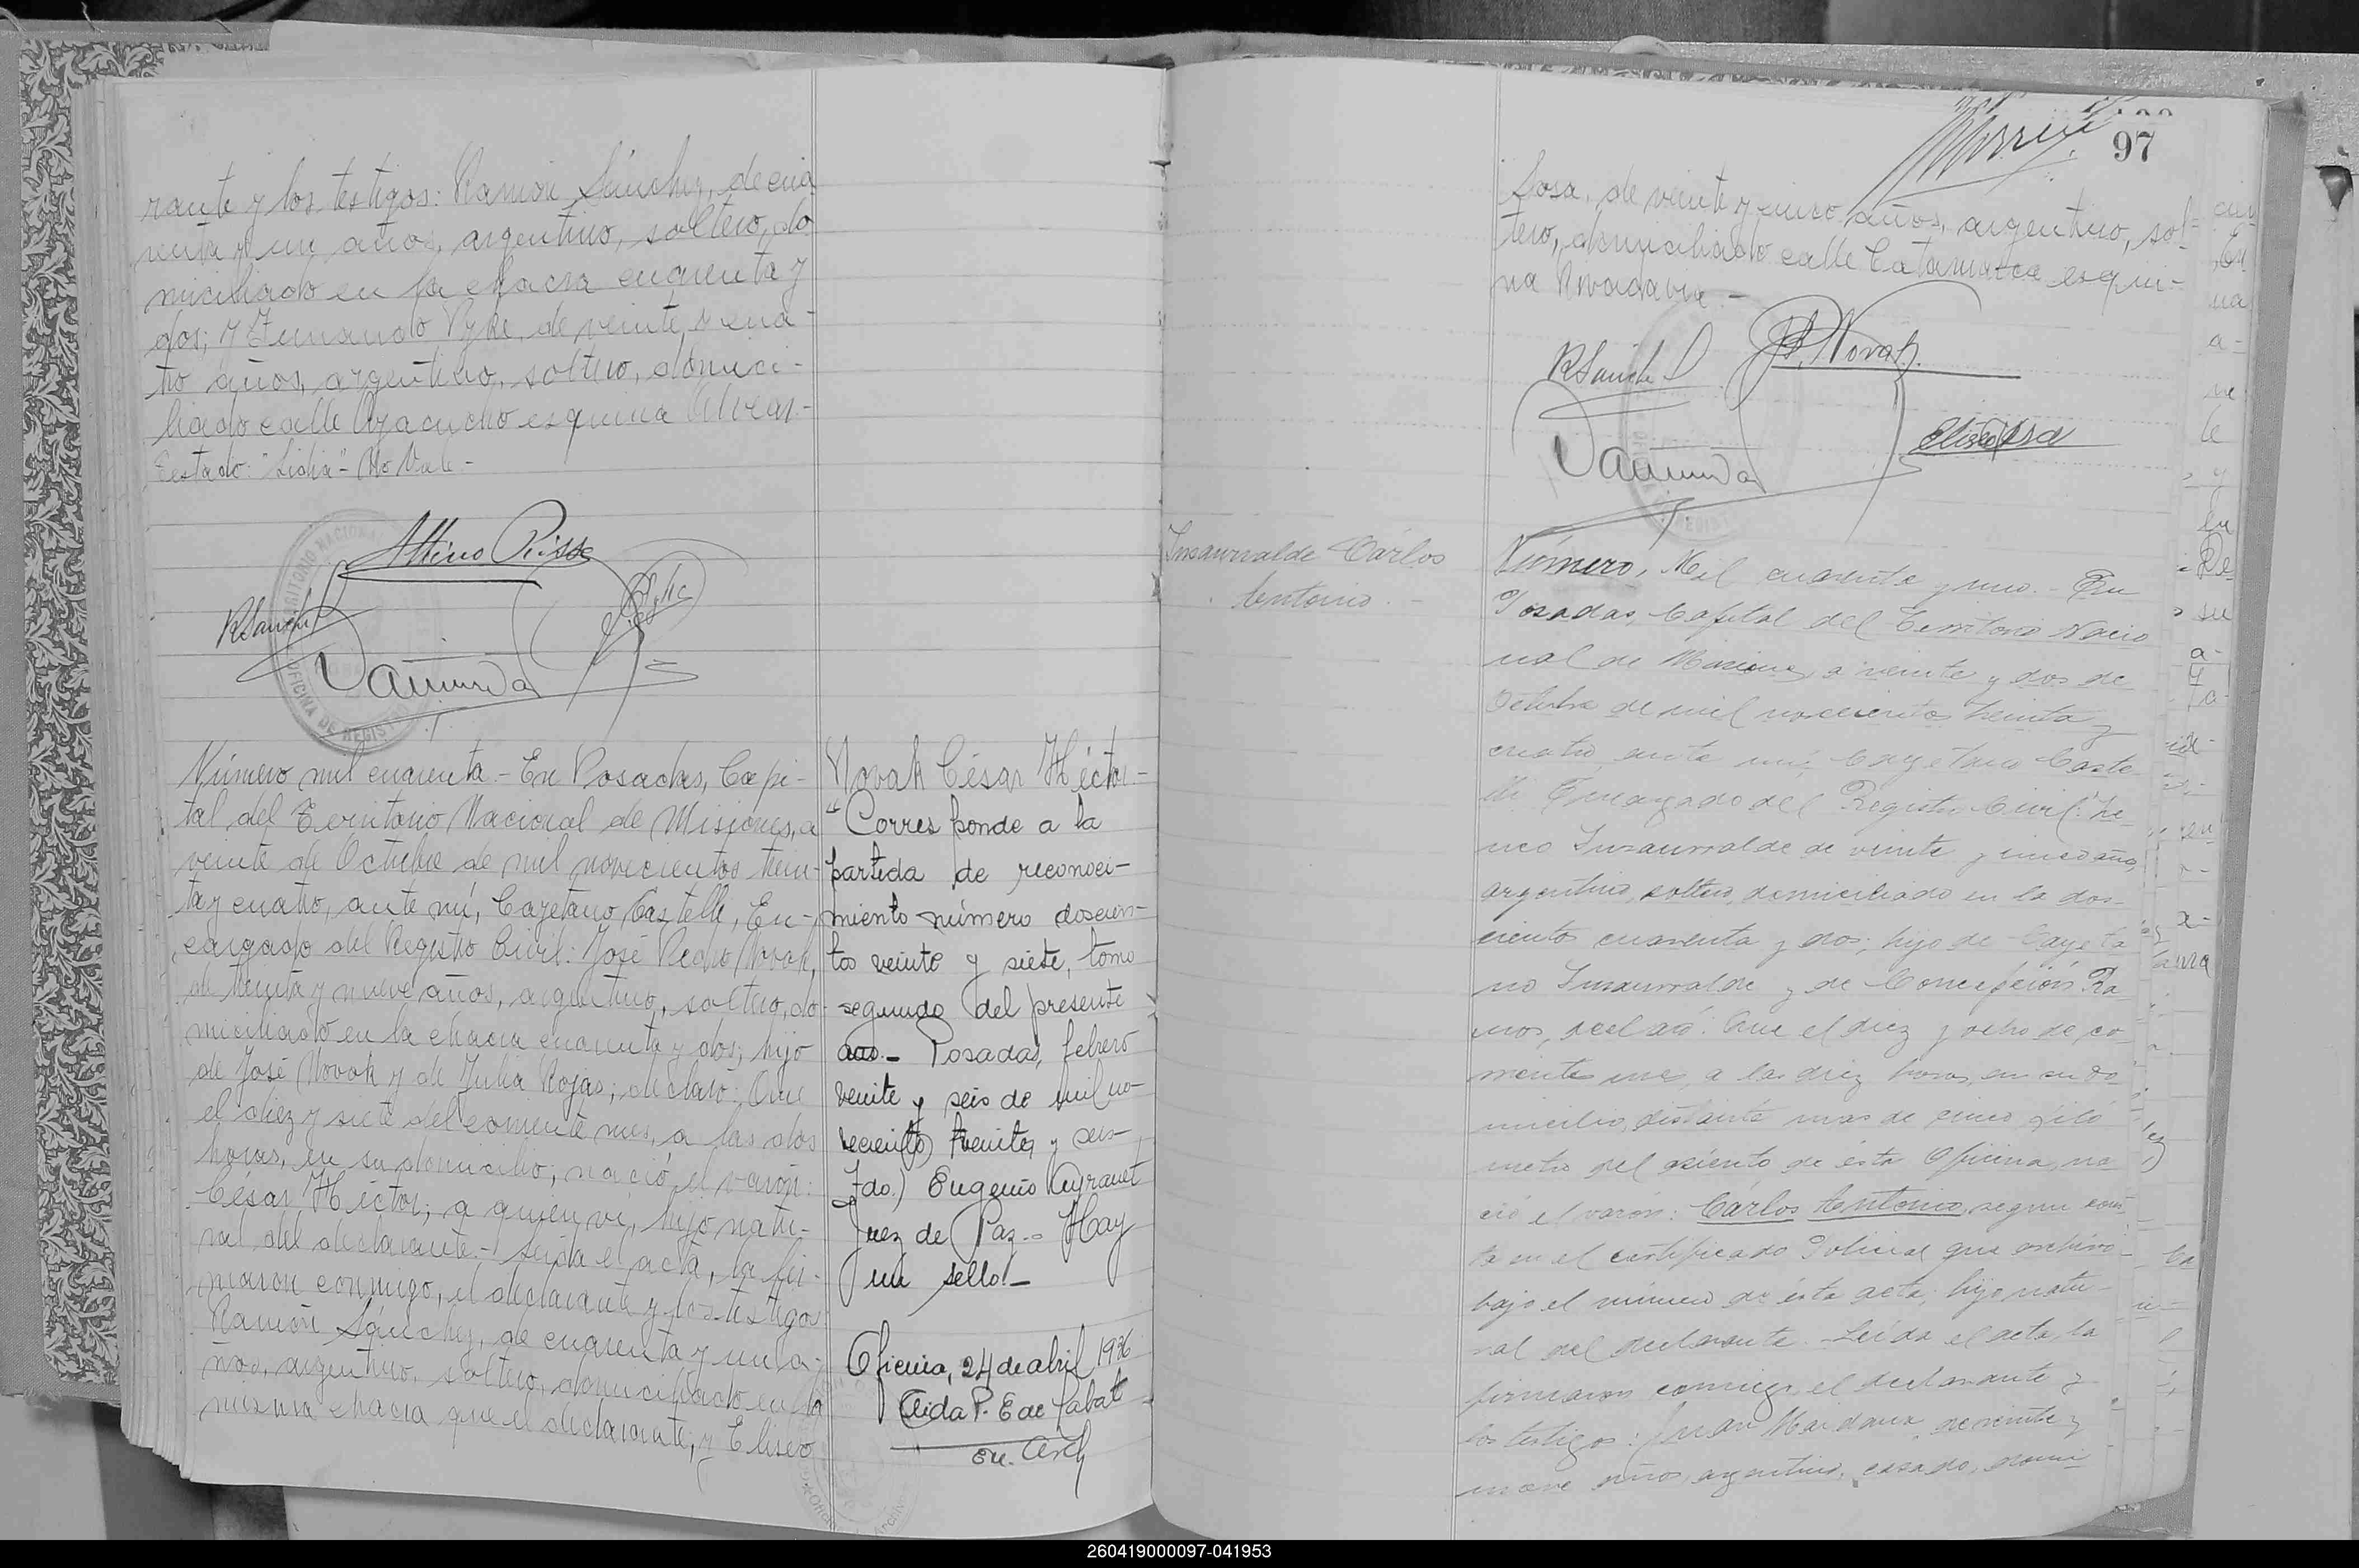 rante y los testigos: Ramón Sánchez, de cua
renta y un años, argentino, soltero, do
miciliado en la chacra cuarenta y
dos; y Fernando Pyke, de veinte y cua-
tro años, argentino, soltero, domici-
liado calle Ayacucho esquina Alvear.-
Testado: "Lidia"- No Vale-
RSánchez
Número mil cuarenta.- En Posadas, Capi-
tal del Territorio Nacional de Misiones, a
veinte de Octubre de mil novecientos trein-
ta y cuatro, ante mí, Cayetano Castelli, En-
cargado del Registro Civil: José Pedro Novak,
de treinta y nueve años, argentino, soltero, do-
miciliado en la chacra cuarenta y dos; hijo
de José Novak y de Julia Rojas; declaró: Que
el diez y siete del corriente mes, a las dos
horas, en su domicilio; nació el varón:
César Héctor; a quien ví, hijo natu-
ral del declarante.- Leida el acta, la fir-
maron conmigo, el declarante y los testigos
Ramón Sánchez, de cuarenta y un a-
ños, argentino, soltero, domiciliado en la
misma chacra que el declarante; y Eliseo
Novak César Héctor.-
"Corresponde a la
partida de reconoci-
miento número doscien-
tos veinte y siete, tomo
segundo del presente
año.- Posadas, febrero
veinte y seis de mil no-
vecientos treinta y seis-
Fdo.) Eugenio
Juez de Paz.- Hay
un sello!-
Oficina, 24 de abril 1936
P. E de Sabat
97
Sosa, de veinte y cinco años, argentino, sol-
tero, domiciliado calle Catamarca esqui-
na Rivadavia.-
RSánchez
J.P. Novak
Eliseo Sosa
Insaurralde Cárlos
Antonio.-
Número, Mil cuarenta y uno.- En
Posadas, Capital del Territorio Nacio
nal de Misiones, a veinte y dos de
Octubre de mil novecientos treinta y
cuatro, ante mí, Cayetano Caste-
lli Encargado del Registro Civil:
Insaurralde de veinte y cinco años,
argentino, soltero, domiciliado en la dos-
cientos cuarenta y dos; hijo de Cayeta
no Insaurralde y de Concepción Ra-
mos, declaró: Que el diez y ocho de co-
rriente mes, a las diez horas, en su do
micilio, distante mas de cinco kiló
metros del asiento de ésta Oficina, na
ció el varón: Cárlos Antonio, segun cons
ta en el certificado Policial que archivo
bajo el número de ésta acta; hijo natu-
ral del declarante. Leída el acta, la
firmaron conmigo, el declarante y
los testigos: Juan Maidana, de veinte y
nueve años, argentino, casado, domi
260419000097-041953